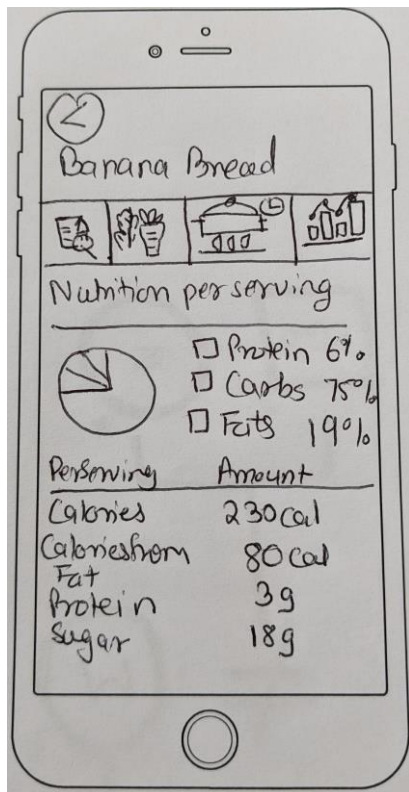 Banana Bread
Nutrition per serving
Protein 6%
Carbs 75%
Fats 19%
Perserving Amount
Calories 230 cal
Calories from Fat 80 cal
Protein 3g
Sugar 18g